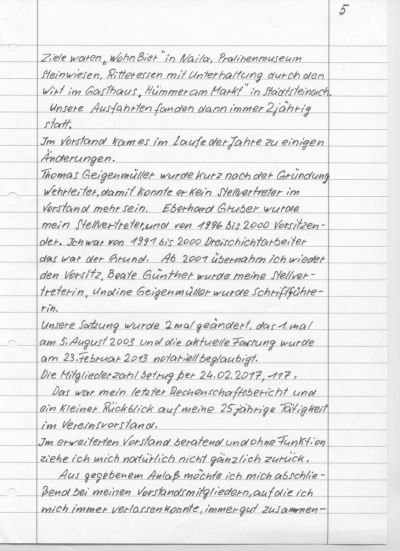 5
Ziele waren „WohnBier" in Naila, Pralinenmuseum
Steinwiesen, Ritteressen mit Unterhaltung durch den
Wirt im Gasthaus „Hümmer am Markt" in Stadtsteinach.
Unsere Ausfahrten fanden dann immer 2jährig
statt.
Im Vorstand kam es im Laufe der Jahre zu einigen
Änderungen.
Thomas Geigenmüller wurde kurz nach der Gründung
Wehrleiter, damit konnte er kein Stellvertreter im
Vorstand mehr sein. Eberhard Gruber wurde
mein Stellvertreter, und von 1996 bis 2000 Vorsitzen-
der. Ich war von 1991 bis 2000 Dreischichtarbeiter
das war der Grund. Ab 2001 übernahm ich wieder
den Vorsitz, Beate Günther wurde meine Stellver-
treterin, Undine Geigenmüller wurde Schriftführe-
rin.
Unsere Satzung wurde 2mal geändert. das 1. mal
am 5. August 2003 und die aktuelle Fassung wurde
am 23. Februar 2013 notariell beglaubigt.
Die Mitgliederzahl betrug per 24.02.2017, 117.
Das war mein letzter Rechenschaftsbericht und
ein kleiner Rückblick auf meine 25jährige Tätigkeit
im Vereinsvorstand.
Im erweiterten Vorstand beratend und ohne Funktion
ziehe ich mich natürlich nicht gänzlich zurück.
Aus gegebenem Anlaß möchte ich mich abschlie-
ßend bei meinen Vorstandsmitgliedern, auf die ich
mich immer verlassen konnte, immer gut zusammen-